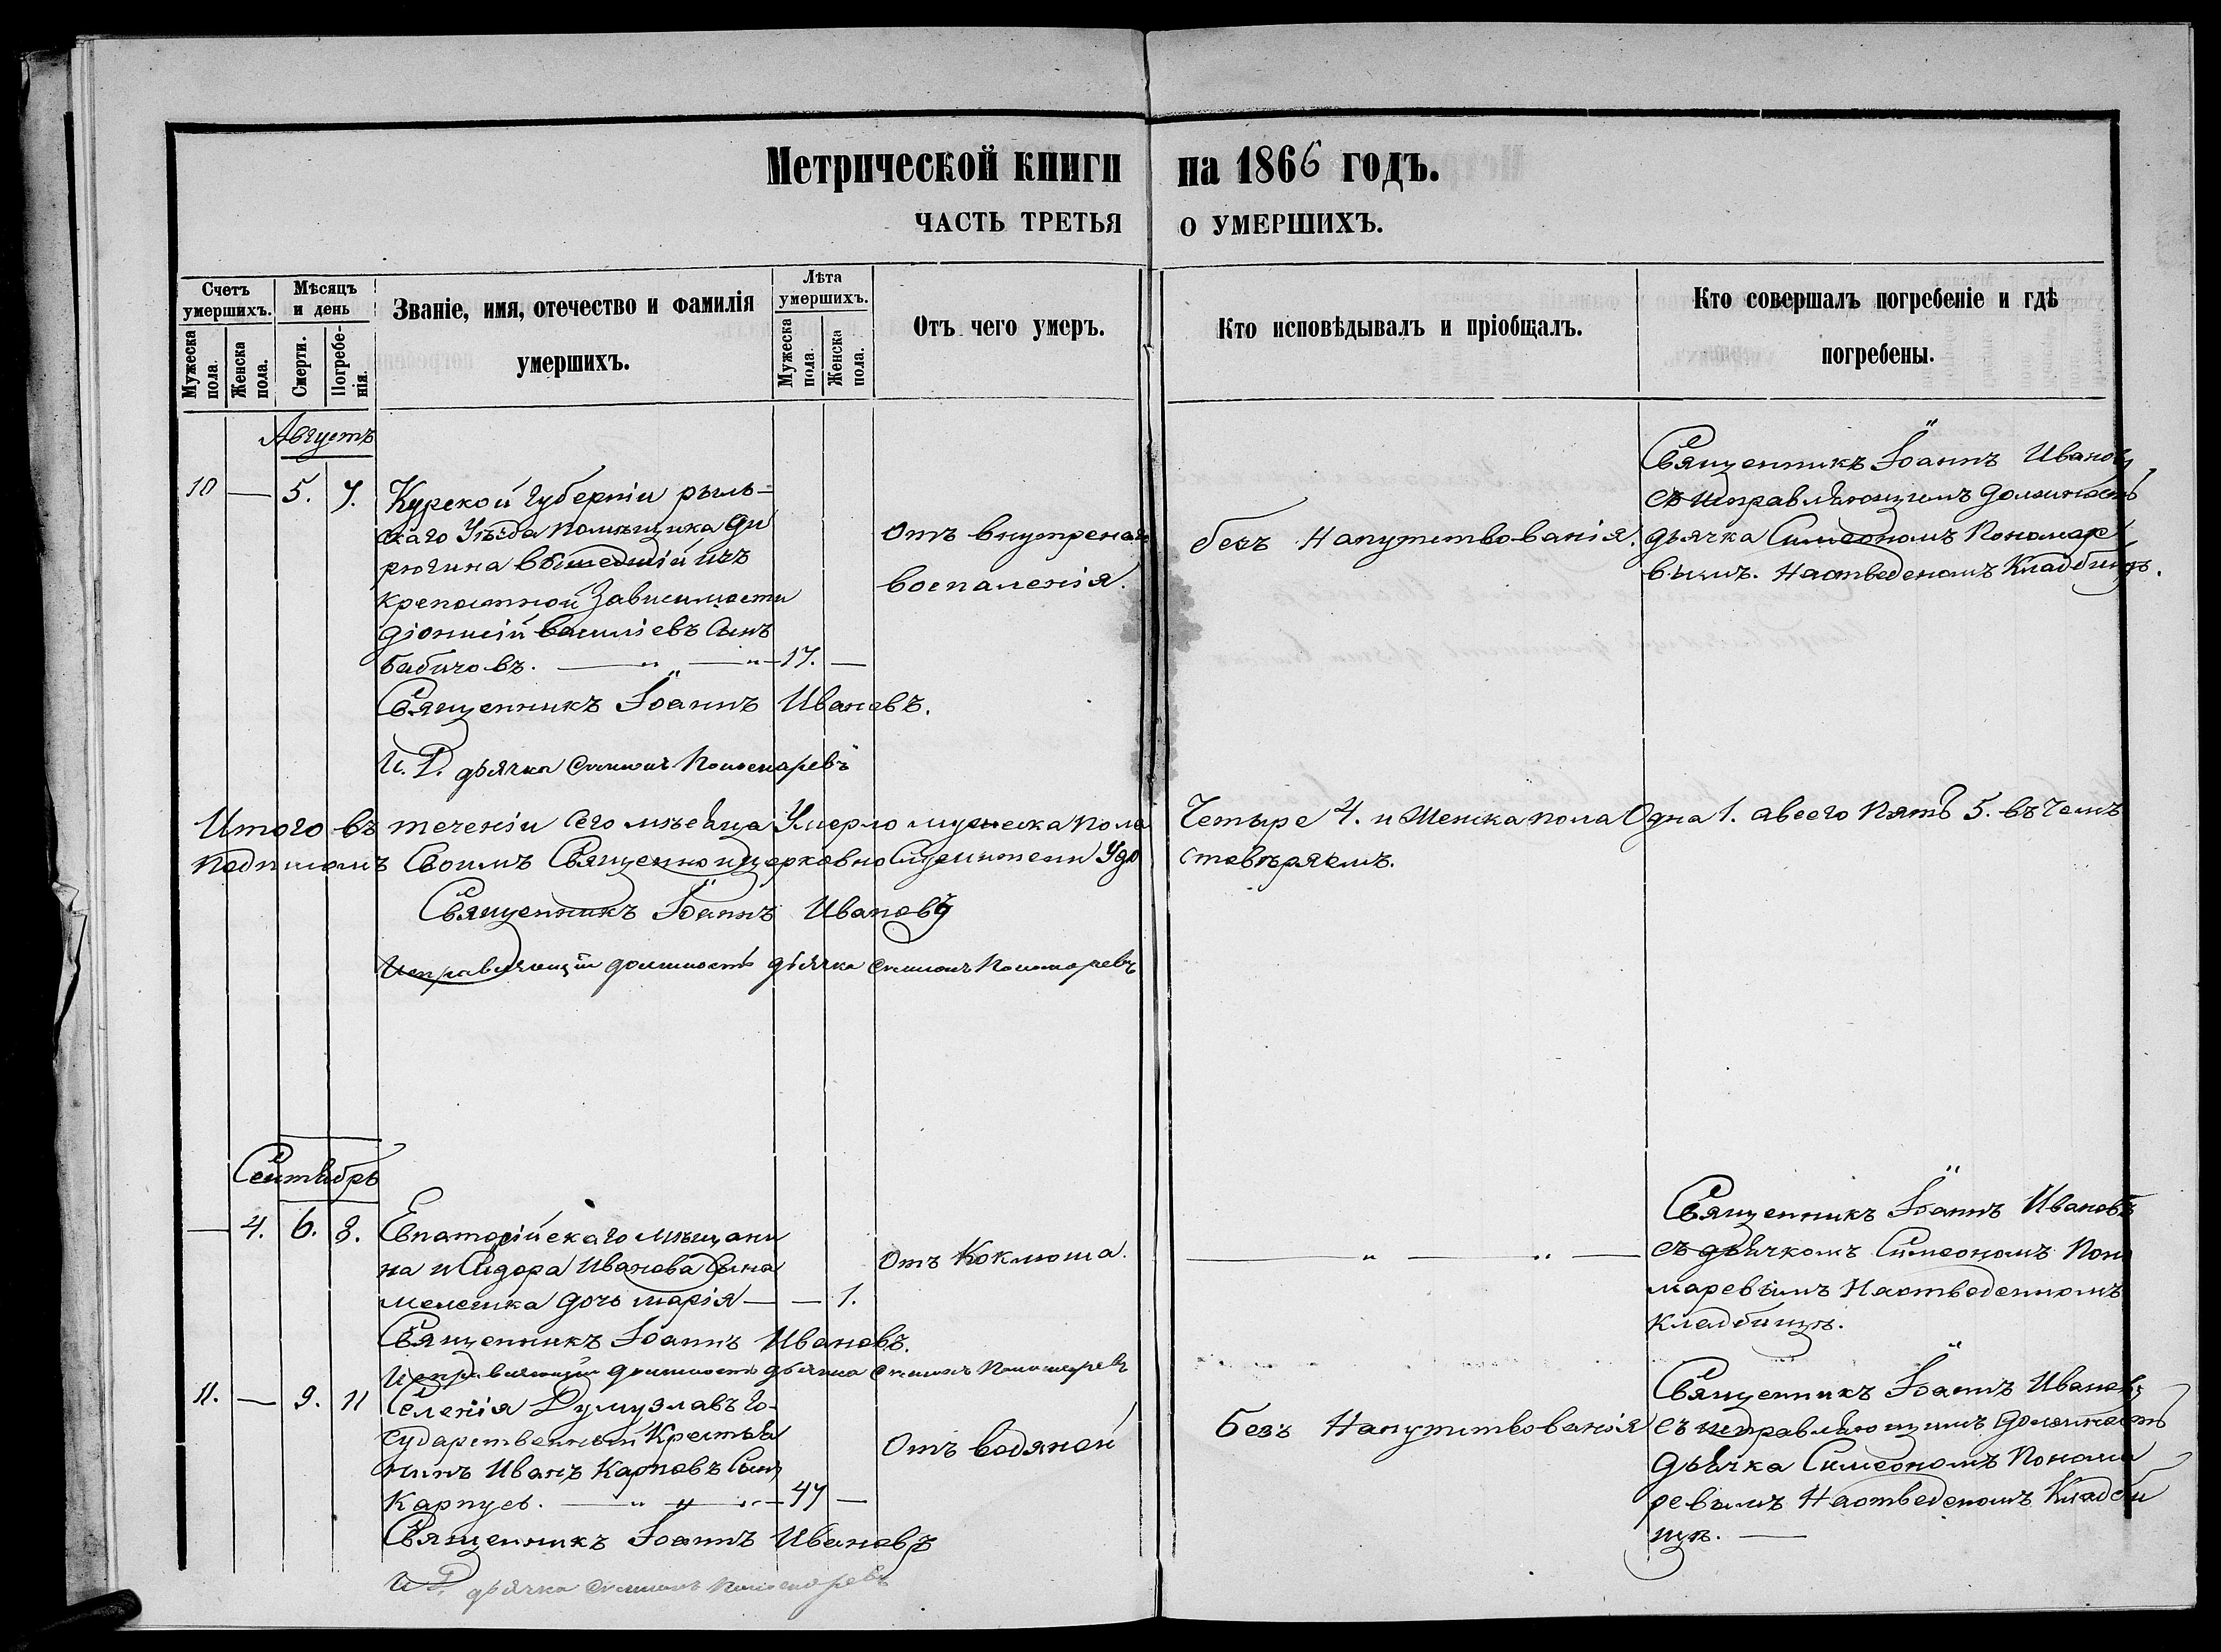 Метрической книги на 1866 годъ.
ЧАСТЬ ТРЕТЬЯ О УМЕРШИХЪ.
Счетъ умершихъ.
Мужеска пола.
Женска пола.
Мѣсяцъ и день
Смерти.
Погребенія.
Званіе, имя, отечество и фамилія
умершихъ.
Лѣта умершихъ.
Мужеска пола.
Женска пола.
Отъ чего умеръ.
Кто исповѣдывалъ и пріобщалъ.
Кто совершалъ погребеніе и гдѣ
погребены.
Августъ
10 — 5. 7.
Курской Губерніи рыль-
скаго Уѣзда помѣщика Ди
рюгина вышедшій изъ
крепостной Зависимости
Діонисій Василіевъ Сынъ
Бабичовъ. — „ — „ — 17. —
Отъ внутренаго
воспаленія.
безъ Напутствованія.
Священникъ Іоаннъ Ивановъ
съ Исправляющимъ должность
дьячка Симеономъ Пономаре
вымъ. На отведеномъ Кладбищѣ.
Священникъ Іоаннъ Ивановъ.
И. Д. дьячка Симионъ Пономаревъ
Итого въ теченіи Сего мѣсяца Умерло мужеска пола Четыре 4. и Женска пола Одна 1. а всего Пять 5. въ чемъ
подписомъ Своимъ Священно и церковно Служители Удо
стовѣряемъ.
Священникъ Іоаннъ Ивановъ
Исправляющій должность дьячка Симионъ Пономаревъ
Сентябрь
— 4. 6. 8.
Евпаторійскаго мѣщани
на Исидора Иванова Сына
мелешка дочь марія — — 1.
Отъ Коклюша.
— „ — „ —
Священникъ Іоаннъ Ивановъ
съ дьячкомъ Симеономъ Поно
маревымъ На отведенномъ
кладбищѣ.
Священникъ Іоаннъ Ивановъ.
Исправляющій должность дьячка Симионъ Пономаревъ
11. — 9. 11
Селенія Думузлавъ Го-
сударственный Крестья
нинъ Иванъ Карповъ Сынъ
Карпуев. — „ — „ — 47 —
Отъ водяной
Безъ Напутствованія
Священникъ Іоаннъ Ивановъ
съ исправляющимъ должность
дьячка Симеономъ Понома
ревымъ На отведеномъ Кладби
щѣ. —
Священникъ Іоаннъ Ивановъ
И Д. дьячка Симионъ Пономаревъ